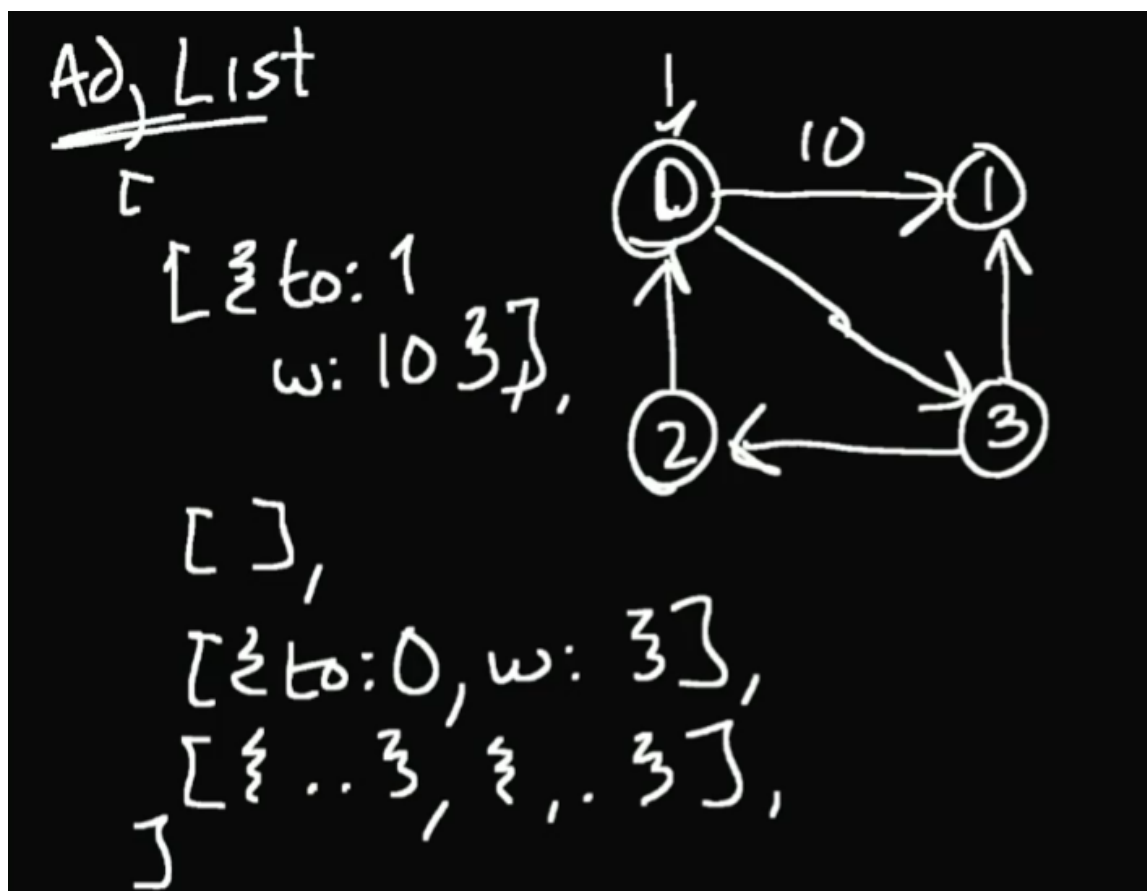 Adj List
[
[{to: 1
w: 10}],
[],
[{to:0, w: }],
[{..}, {,.}],
]
10
0
1
2
3